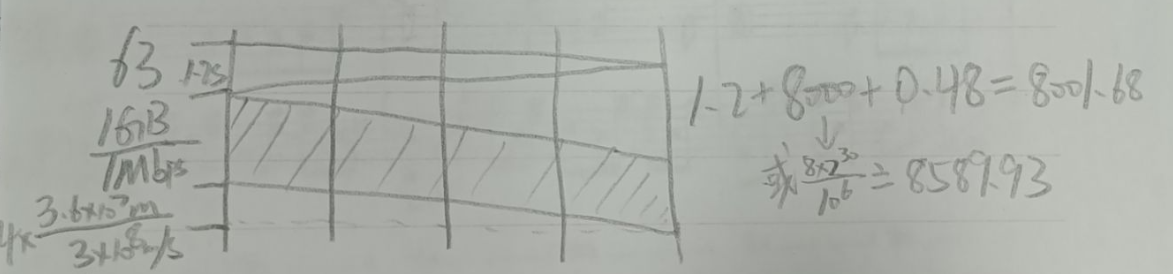 63
1.2s
1GB
1Mbps
4× 3.6×10⁷m
3×10⁸m/s
1.2+8000+0.48=8001.68
↓
或 8×2³⁰/10⁶ = 8589.93